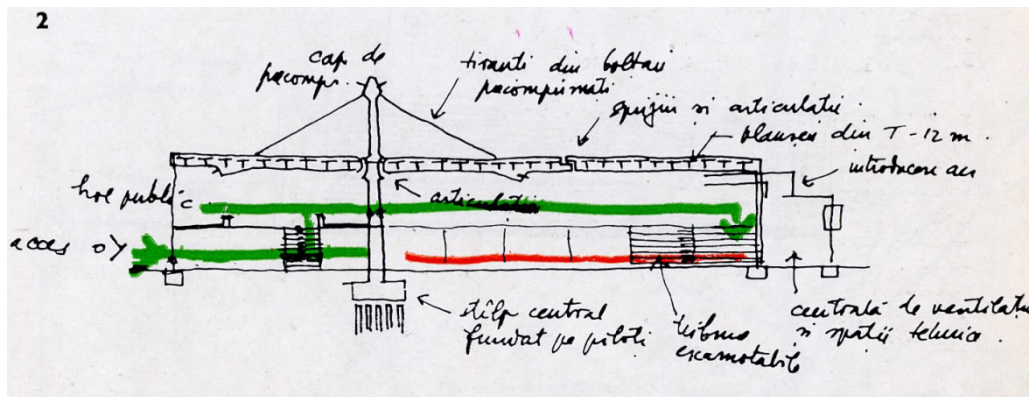 2
cap de
precompr.
tiranti din boltari
precomprimati
sprijin si articulatie
planseu din T-12 m.
introducere aer
hol public
articulatie
acces
stâlp central
fundat pe piloti
tribune
escamotabile
centrală de ventilatie
si spatii tehnice.